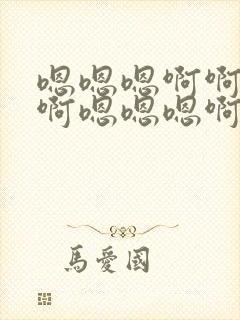 嗯嗯嗯啊啊
啊嗯嗯嗯啊
馬愛國